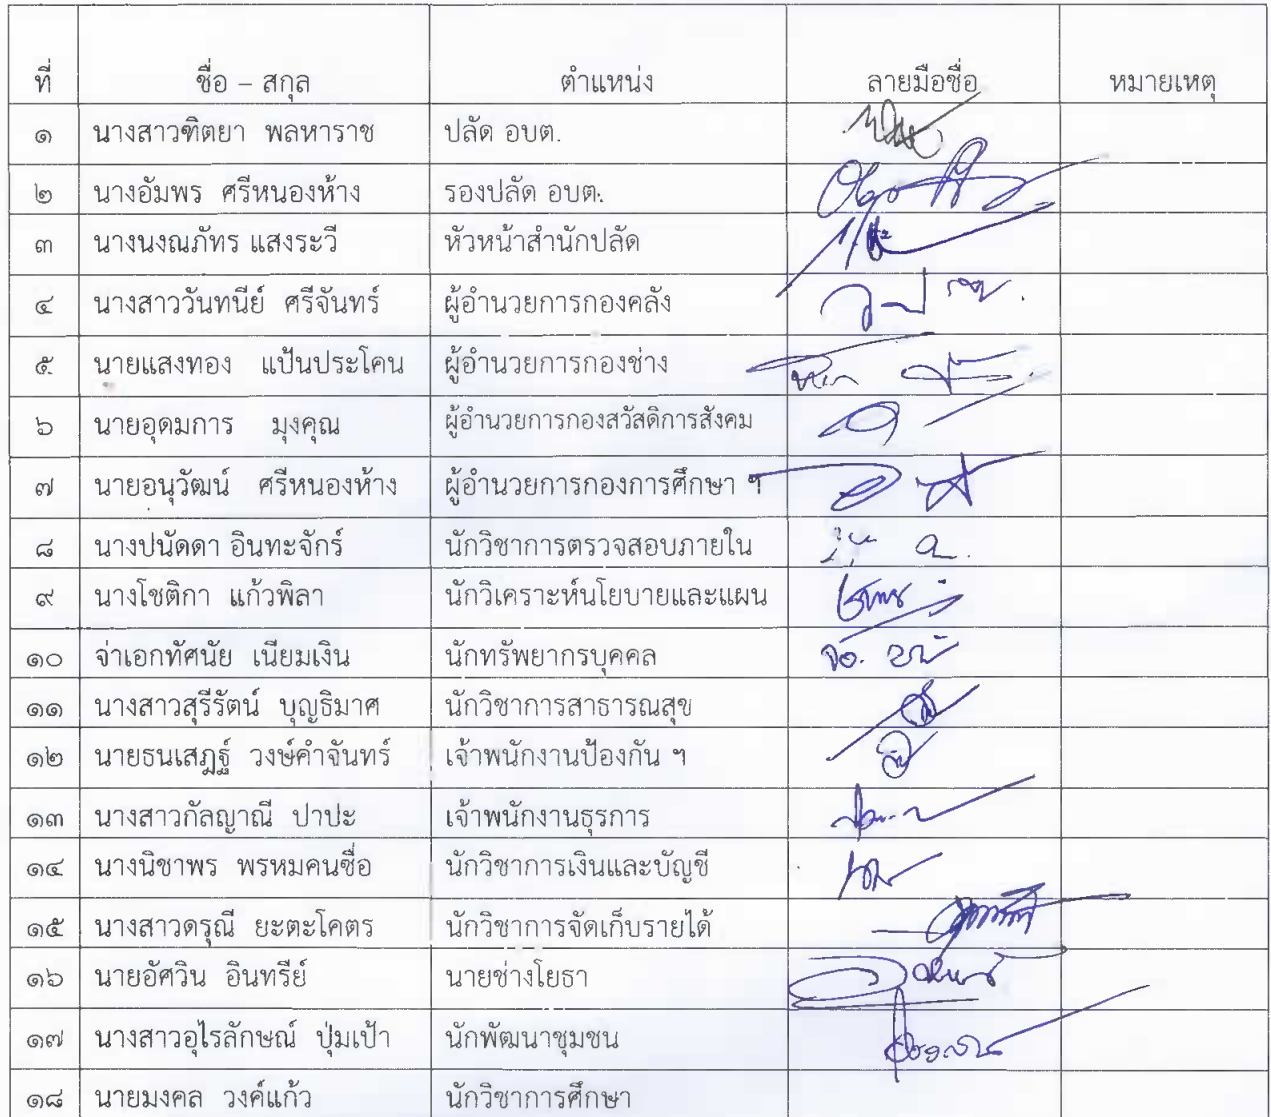 ที่ ชื่อ – สกุล ตำแหน่ง ลายมือชื่อ หมายเหตุ
๑ นางสาวฑิตยา พลหาราช ปลัด อบต.
๒ นางอัมพร ศรีหนองห้าง รองปลัด อบต.
๓ นางนงณภัทร แสงระวี หัวหน้าสำนักปลัด
๔ นางสาววันทนีย์ ศรีจันทร์ ผู้อำนวยการกองคลัง
๕ นายแสงทอง แป้นประโคน ผู้อำนวยการกองช่าง
๖ นายอุดมการ มุงคุณ ผู้อำนวยการกองสวัสดิการสังคม
๗ นายอนุวัฒน์ ศรีหนองห้าง ผู้อำนวยการกองการศึกษา ฯ
๘ นางปนัดดา อินทะจักร์ นักวิชาการตรวจสอบภายใน
๙ นางโชติกา แก้วพิลา นักวิเคราะห์นโยบายและแผน
๑๐ จ่าเอกทัศนัย เนียมเงิน นักทรัพยากรบุคคล
๑๑ นางสาวสุรีรัตน์ บุญธิมาศ นักวิชาการสาธารณสุข
๑๒ นายธนเสฏฐ์ วงษ์คำจันทร์ เจ้าพนักงานป้องกัน ฯ
๑๓ นางสาวกัลญาณี ปาปะ เจ้าพนักงานธุรการ
๑๔ นางนิชาพร พรหมคนซื่อ นักวิชาการเงินและบัญชี
๑๕ นางสาวดรุณี ยะตะโคตร นักวิชาการจัดเก็บรายได้
๑๖ นายอัศวิน อินทรีย์ นายช่างโยธา
๑๗ นางสาวอุไรลักษณ์ ปุ่มเป้า นักพัฒนาชุมชน
๑๘ นายมงคล วงค์แก้ว นักวิชาการศึกษา